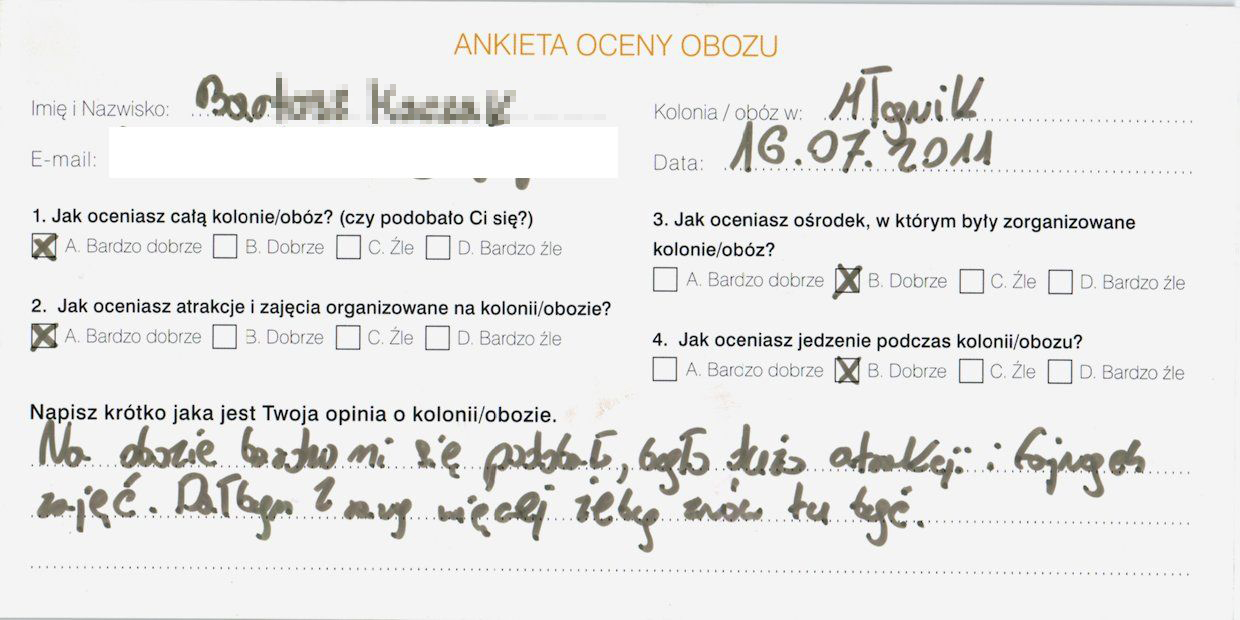 ANKIETA OCENY OBOZU
Imię i Nazwisko: Bartosz
Kolonia / obóz w: Młynik
E-mail:
Data: 16.07.2011
1. Jak oceniasz całą kolonie/obóz? (czy podobało Ci się?)
X A. Bardzo dobrze B. Dobrze C. Źle D. Bardzo źle
2. Jak oceniasz atrakcje i zajęcia organizowane na kolonii/obozie?
X A. Bardzo dobrze B. Dobrze C. Źle D. Bardzo źle
3. Jak oceniasz ośrodek, w którym były zorganizowane
kolonie/obóz?
A. Bardzo dobrze X B. Dobrze C. Źle D. Bardzo źle
4. Jak oceniasz jedzenie podczas kolonii/obozu?
A. Bardzo dobrze X B. Dobrze C. Źle D. Bardzo źle
Napisz krótko jaka jest Twoja opinia o kolonii/obozie.
Na obozie bardzo mi się podobało, było dużo atrakcji i fajnych
zajęć. Dałbym 2 razy więcej żeby znów tu być.